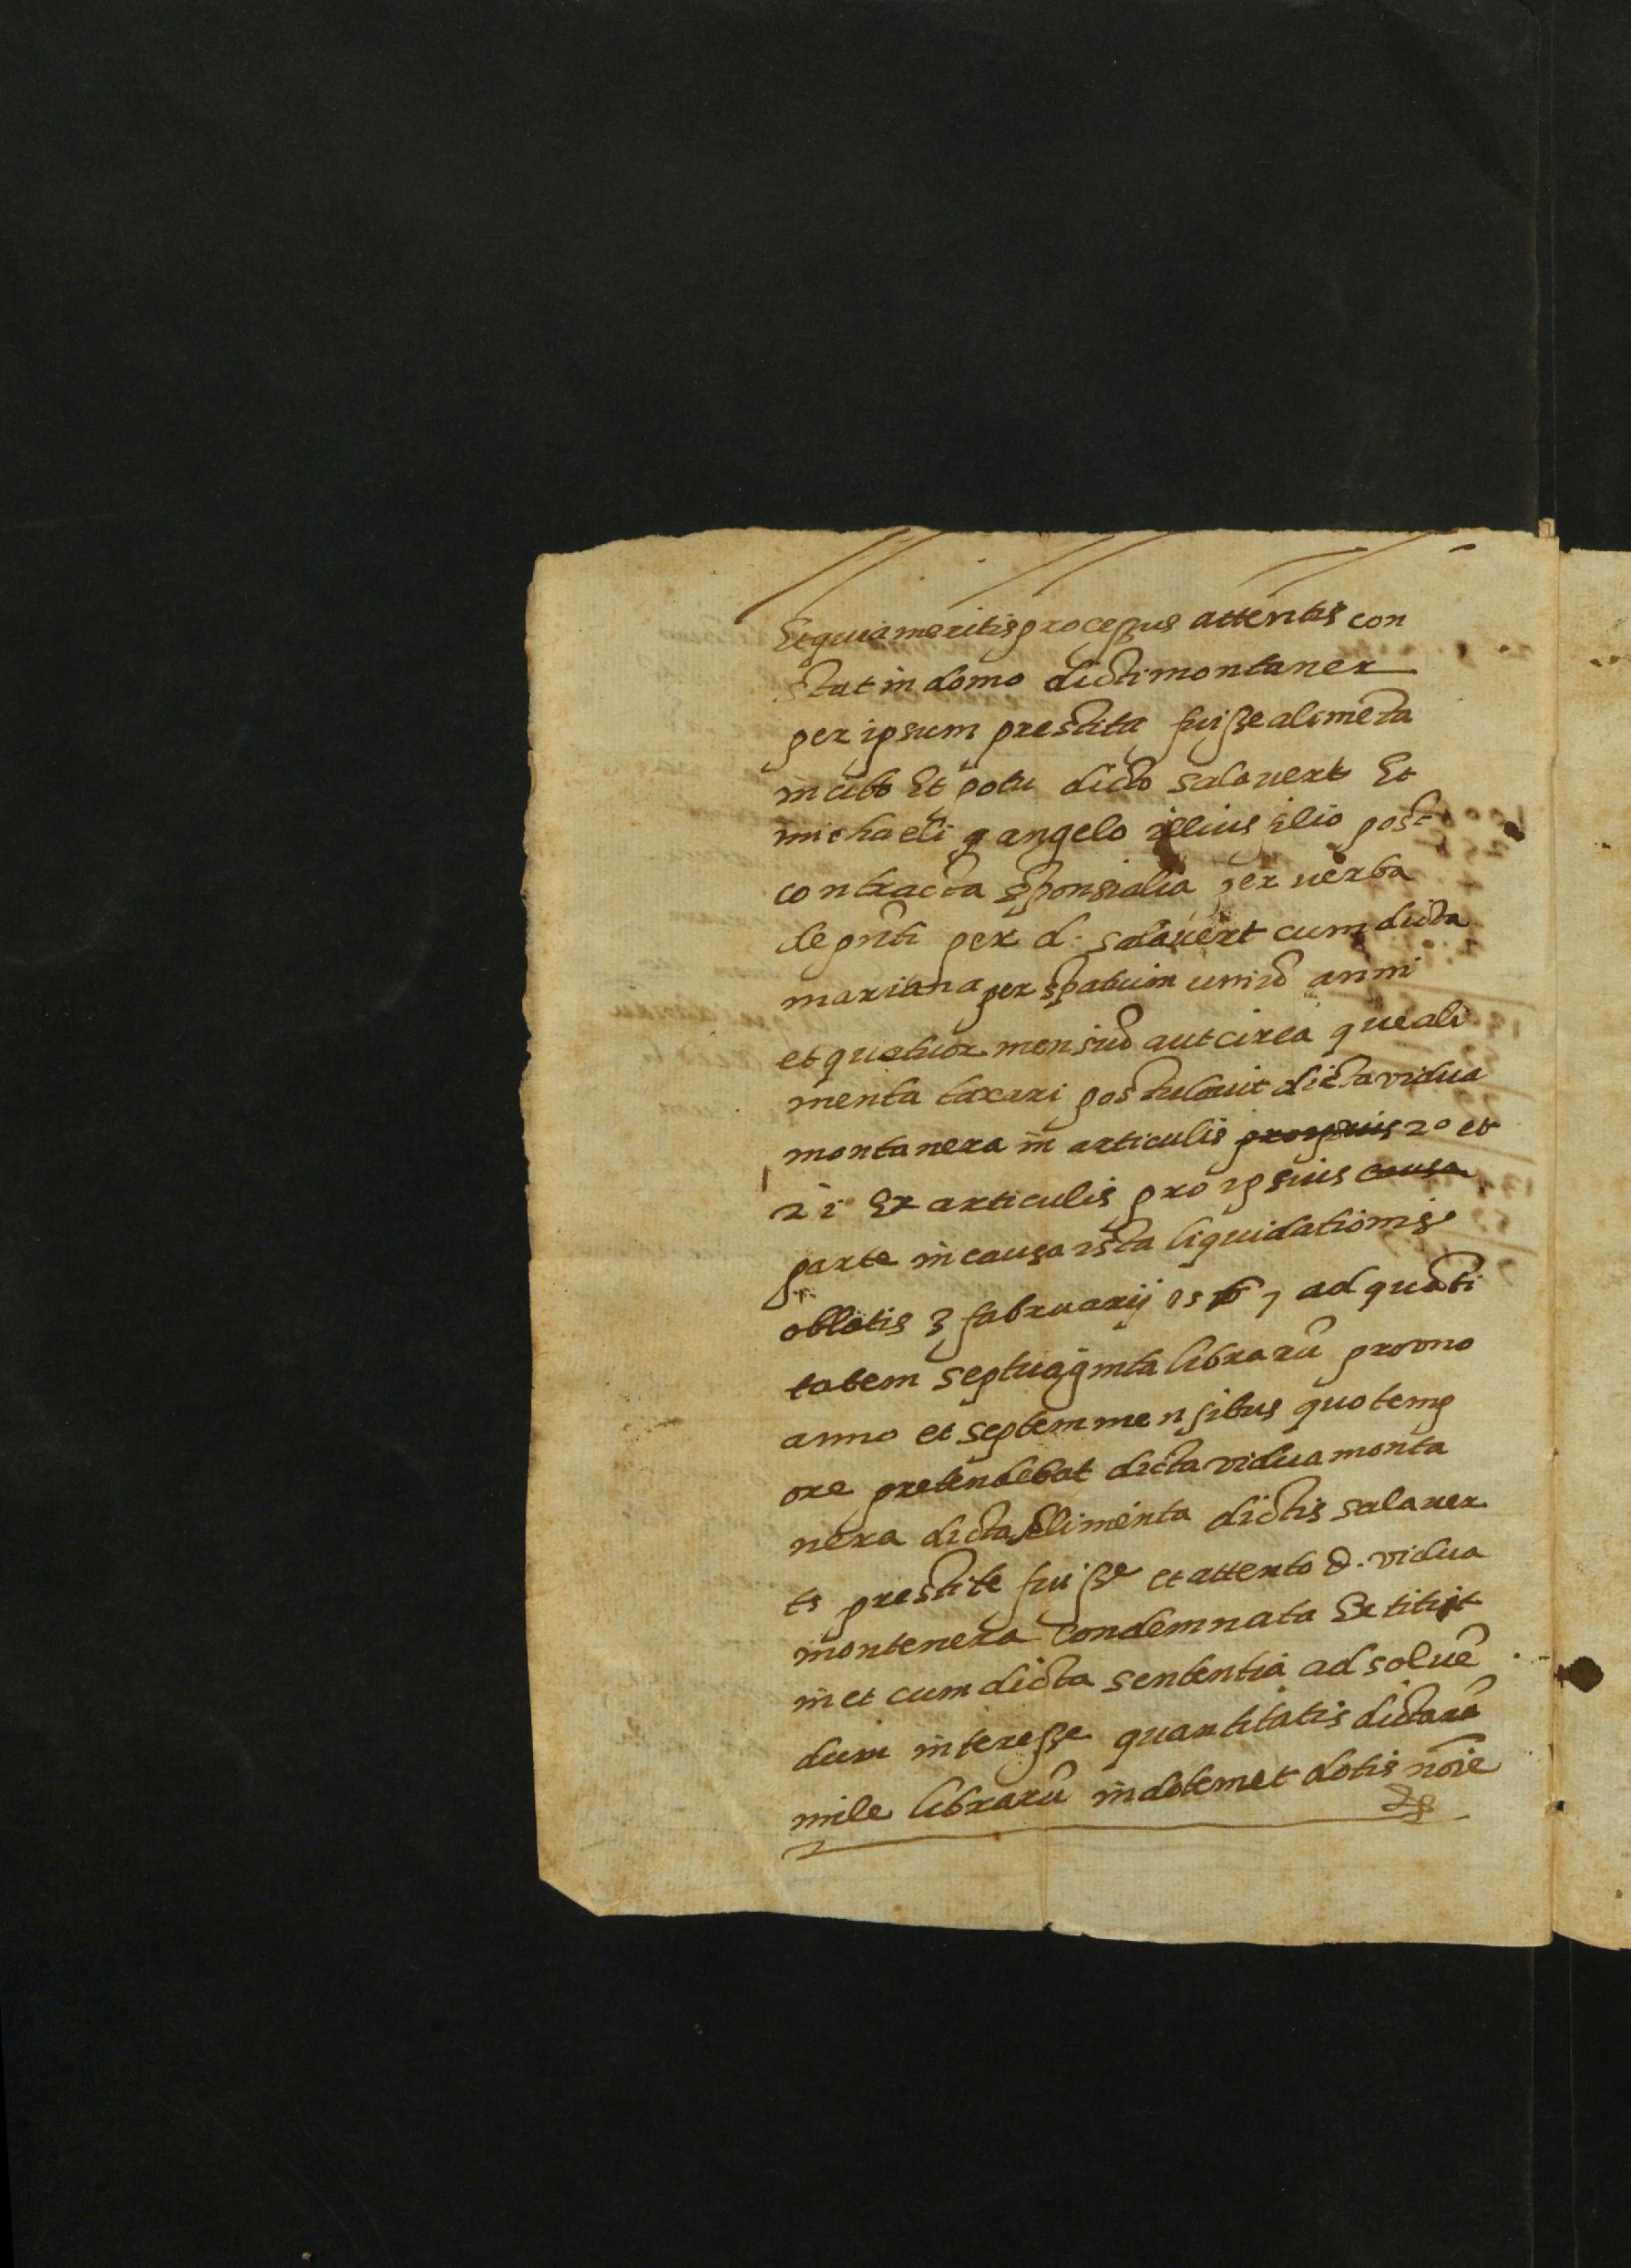 Et quia meritis processus attentis con
stat in domo dicti montaner
per ipsum prestita fuisse alimẽta
in cibo Et potu dicto salavert Et
michaeli angelo illius filio post
contracta sponsalia per verba
de pñti per d. salavert cum dicta
mariana per spatium unius anni
et quatuor mensiũ aut circa que ali
menta taxari postulavit dicta vidua
montanera in articulis pro ipsius 20 et
21 Et articulis pro ipsius causa
parte in causa ista liquidationis
oblatis 3 februarij ad quãti
tatem septuaginta librarũ pro uno
anno et septem mensibus quo temp
ore pretendebat dicta vidua monta
nera dicta alimenta dictis salaver
ts prestite fuisse et attento d. vidua
montenera condemnata Extitit
in et cum dicta sententia ad solvẽ
dum interesse quantitatis dictarũ
mile librarũ in dotem et dotis nõie